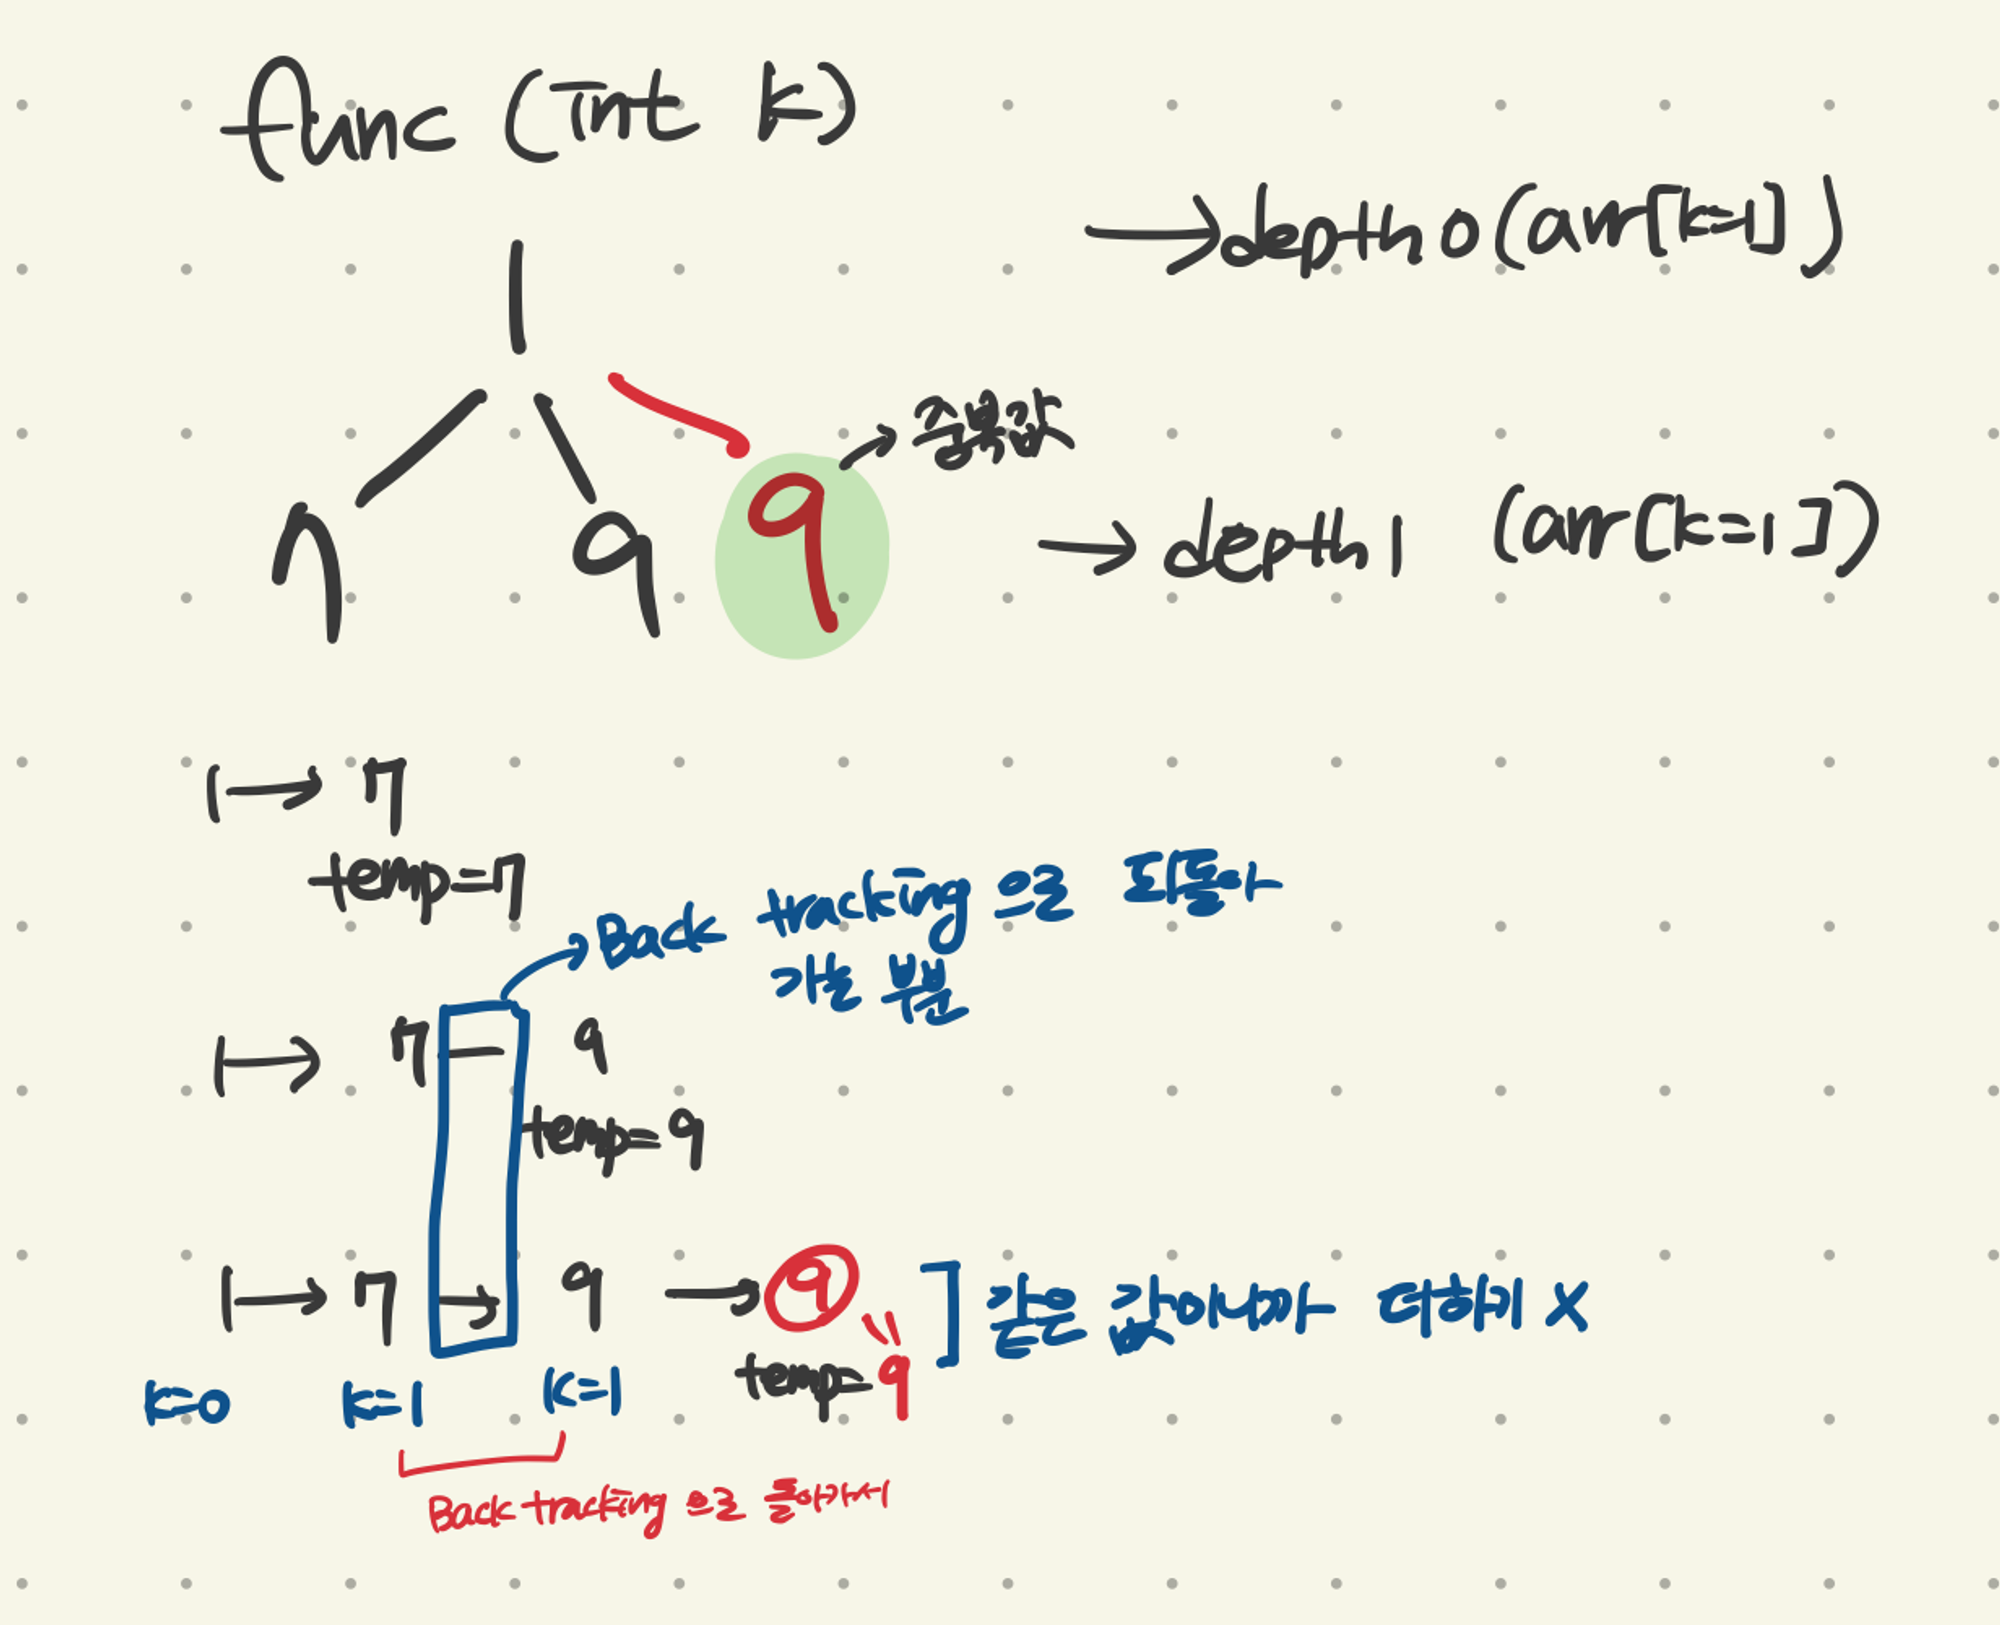 func (int k)
→ depth 0 (arr[k=1])
1
→ 중복값
7 9 9
→ depth 1 (arr[k=1])
1 → 7
temp=7
Back tracking 으로 되돌아
가는 부분
1 → 7 — 9
temp=9
1 → 7 → 9 → 9
같은 값이니까 더하기 X
temp=9
k=0 k=1 k=1
Back tracking 으로 돌아가서